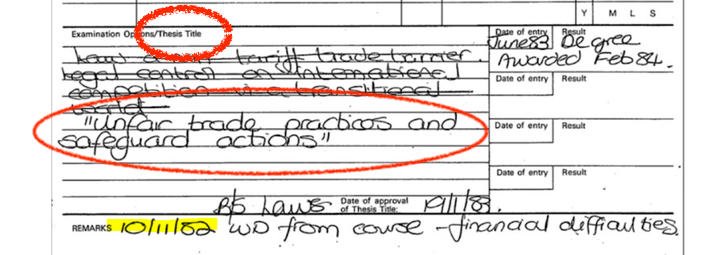 Y M L S
Examination Options/Thesis Title
Date of entry Result
June 83 Degree
Awarded Feb 84.
Law tariff trade barrier.
Legal control on International
competition in a transitional
world
"Unfair trade practices and
safeguard actions"
Date of entry Result
Date of entry Result
B/S Laws Date of approval
of Thesis Title: 19/1/83.
REMARKS 10/11/82 WD from course - financial difficulties